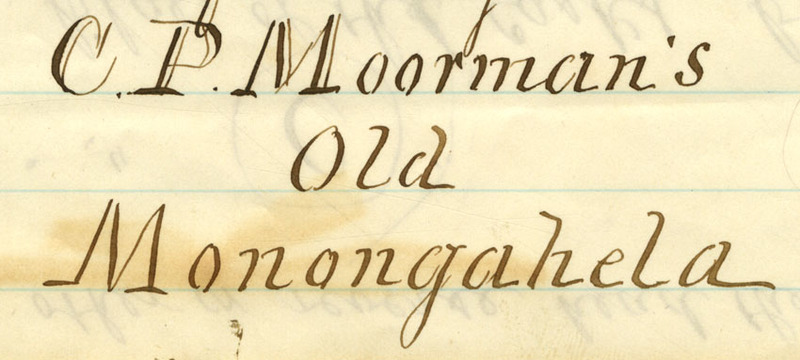 C.P. Moorman's
Old
Monongahela